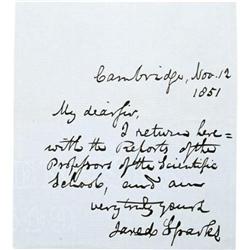 Cambridge, Nov. 12
1851
My dear sir,
I return here=
with the Reports of the
Professors of the Scientific
School, and am
very truly yours
Jared Sparks